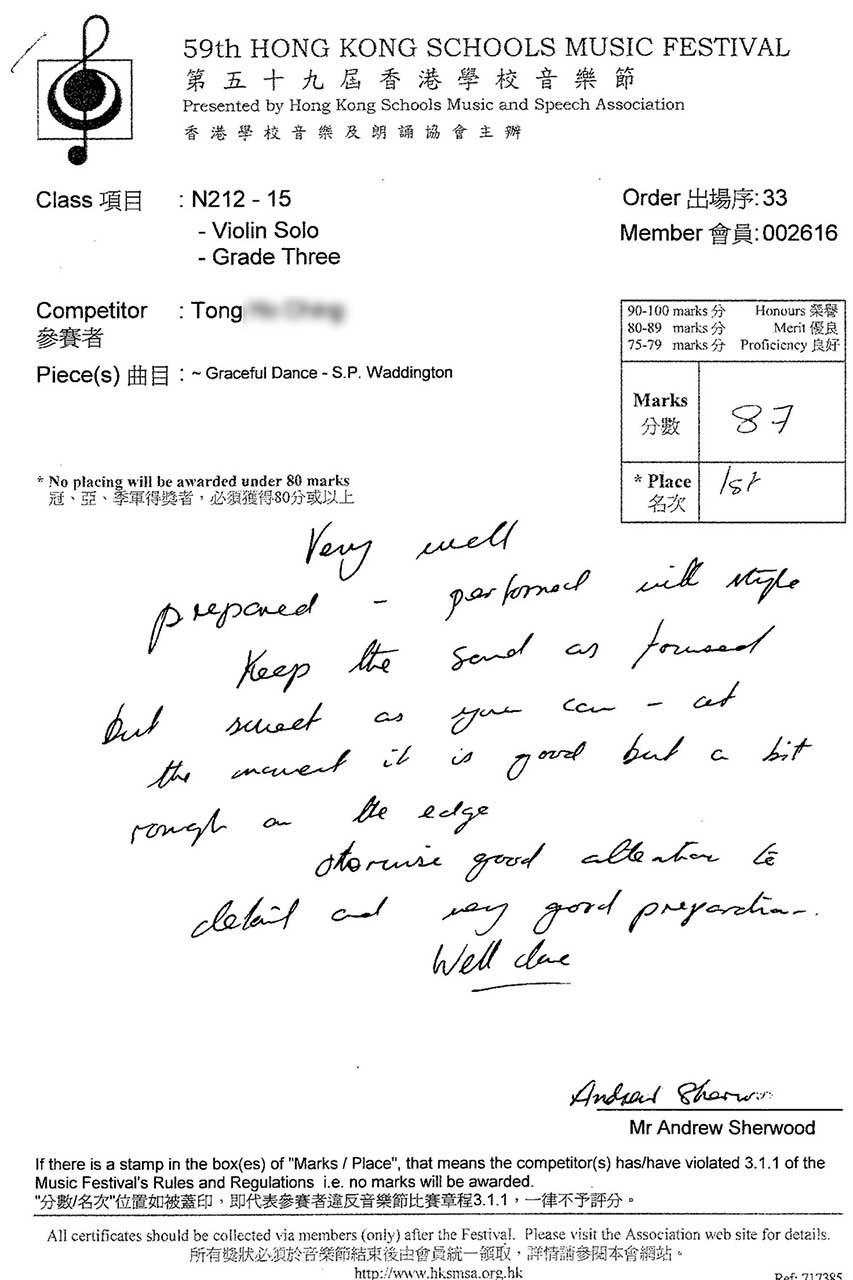 59th HONG KONG SCHOOLS MUSIC FESTIVAL
第五十九屆香港學校音樂節
Presented by Hong Kong Schools Music and Speech Association
香港學校音樂及朗誦協會主辦
Class 項目 : N212 - 15
- Violin Solo
- Grade Three
Order 出場序: 33
Member 會員: 002616
Competitor : Tong
參賽者
Piece(s) 曲目 : ~ Graceful Dance - S.P. Waddington
90-100 marks 分 Honours 榮譽
80-89 marks 分 Merit 優良
75-79 marks 分 Proficiency 良好
Marks 87
分數
* Place 1st
名次
* No placing will be awarded under 80 marks
冠、亞、季軍得獎者，必須獲得80分或以上
Very well
prepared - performed with style
Keep the sound as focused
but sweet as you can - at
the moment it is good but a bit
rough on the edge
otherwise good attention to
detail and very good preparation.
Well done
Andrew Sherwood
Mr Andrew Sherwood
If there is a stamp in the box(es) of "Marks / Place", that means the competitor(s) has/have violated 3.1.1 of the
Music Festival's Rules and Regulations i.e. no marks will be awarded.
"分數/名次"位置如被蓋印，即代表參賽者違反音樂節比賽章程3.1.1，一律不予評分。
All certificates should be collected via members (only) after the Festival. Please visit the Association web site for details.
所有獎狀必須於音樂節結束後由會員統一領取，詳情請參閱本會網站。
http://www.hksmsa.org.hk
Ref: 717385